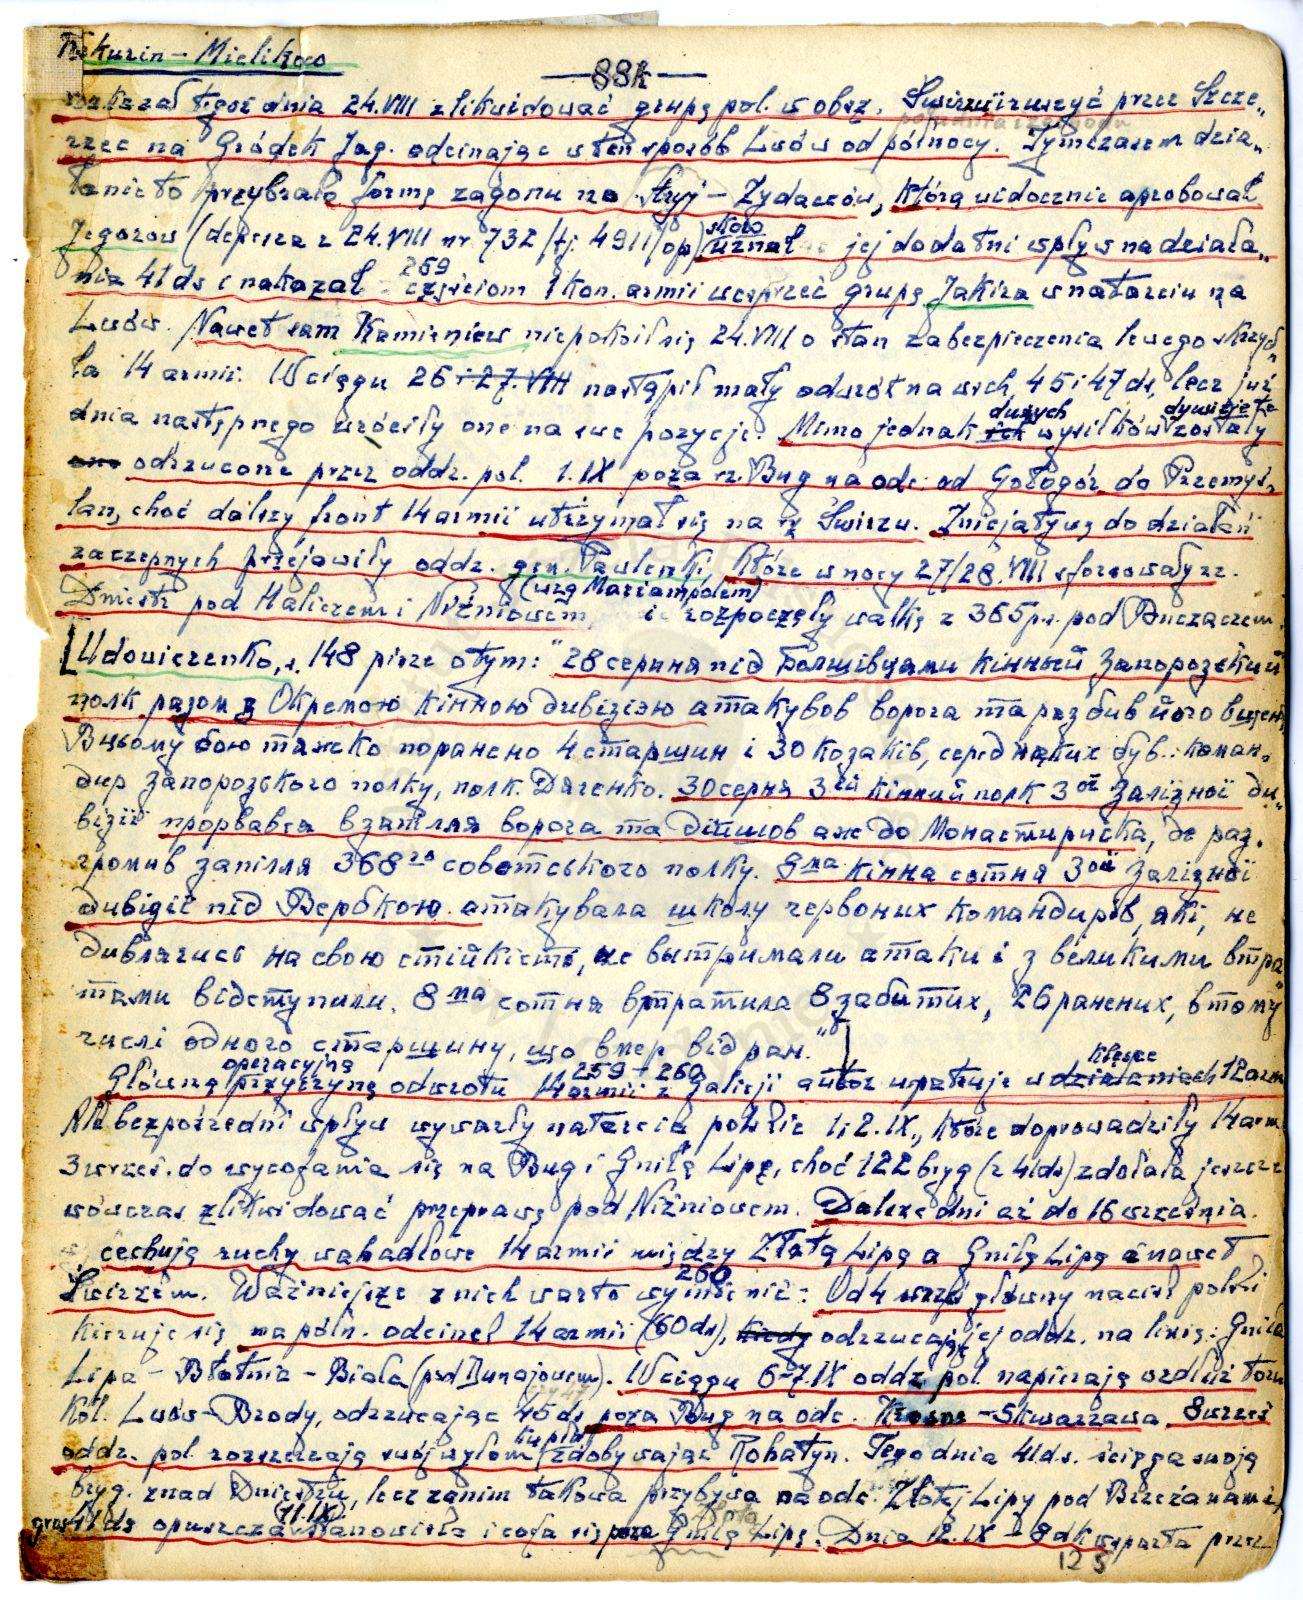 Kakurin – Mielikow
— 88k —
rozkazał tegoż dnia 24.VIII zlikwidować grupę pol. w obsz. Świrz i ruszyć przez Szcze„
rzec na Gródek Jag. odcinając w ten sposób Lwów od północy. Tymczasem dzia„
łanie to przybrało formę zagonu na Stryj – Żydaczów, którą widocznie aprobował
Jegorow (depesza z 24.VIII nr 732/tj. 4911/op) skoro uznał jej dodatni wpływ na działa„
nia 41 ds i nakazał 259 częściom 1 kon. armii wesprzeć grupę Jakira w natarciu na
Lwów. Nawet sam Kamieniew niepokoił się 24.VIII o stan zabezpieczenia lewego skrzyd„
ła 14 armii. W ciągu 26 i 27.VIII nastąpił mały odwrót na wsch. 45 i 47 ds, lecz już
dnia następnego wróciły one na swe pozycje. Mimo jednak dużych ich wysiłków dywizje te zostały
one odrzucone przez oddz. pol. 1.IX poza rz. Bug na odc. od Gołogór do Przemyś„
lan, choć dalszy front 14 armii utrzymał się na rz Świrzu. Inicjatywę do działań
zaczepnych przejawiły oddz. gen. Pawlenki, które w nocy 27/28.VIII sforsowały rz.
Dniestr pod Haliczem i Niżniowem (wzg Mariampolem) i rozpoczęły walkę z 365 p.s. pod Buczaczem.
[Udowiczenko, s. 148 pisze o tym: "28 серпня під большівцями кінний Запорозський
полк разом з Окремою кінною дивізією атакував ворога та розбив його вщент.
В цьому бою тяжко поранено 4 старшин і 30 козаків, серед яких був: коман„
дир Запорозського полку, полк. Дяченко. 30 серпня 3ій кінний полк 3ої Залізної ди„
візії прорвався в запілля ворога та дійшов аж до Монастириська, де роз„
громив запілля 368го советського полку. 8ма кінна сотня 3ої Залізної
дивізії під Вербкою атакувала школу червоних командирів, які, не
дивлячись на свою стійкість, не витримали атаки і з великими втра„
тами відступили. 8ма сотня втратила 8 забитих, 26 ранених, в тому
числі одного старшину, що вмер від ран."]
Główną operacyjną przyczynę odwrotu 14 armii 259–260 z Galicji autor upatruje w klęsce działaniach 12 arm
Ale bezpośredni wpływ wywarły natarcia polskie 1 i 2.IX., które doprowadziły 14 arm.
3 wrześ. do wycofania się na Bug i Gniłą Lipę, choć 122 bryg (z 41 ds) zdołała jeszcze
wówczas zlikwidować przeprawę pod Niżniowem. Dalsze dni aż do 16 września
cechują ruchy wahadłowe 14 armii między Złotą Lipą a Gniłą Lipą a nawet
Świrzem. Ważniejsze z nich warto wymienić: 260 Od 4 wrześ główny nacisk polski
kieruje się na półn. odcinek 14 armii (60 ds), kiedy odrzucając jej oddz. na linię: Gniła
Lipa – Błotnia – Biała (pod Dunajowem). W ciągu 6–7.IX oddz pol. napierają wzdłuż toru
kol. Lwów–Brody, odrzucając 45 ds poza Bug na odc. Krasne – Skwarzawa. 8 wrześ
oddz. pol rozszerzają swój wyłom zdobywając Rohatyn. Tego dnia 41 ds. ściąga swoją
bryg. znad Dniestru, lecz zanim takowa przybywa na odc. Złotej Lipy pod Brzeżanami,
gros 41 ds opuszcza (11.IX) stanowiska i cofa się poza Gniłą Lipę. Dnia 12.IX – 8 dk wsparta przez
125